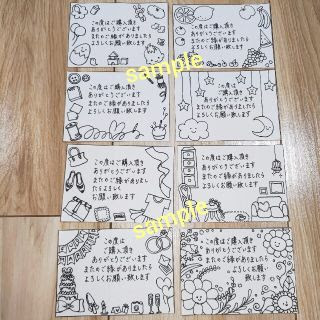 この度はご購入頂き
ありがとうございます
またのご縁がありましたら
よろしくお願い致します
この度はご購入頂き
ありがとうございます
またのご縁がありましたら
よろしくお願い致します
sample
この度はご購入頂き
ありがとうございます
またのご縁がありましたら
よろしくお願い致します
この度はご購入頂き
ありがとうございます
またのご縁がありましたら
よろしくお願い致します
この度はご購入頂き
ありがとうございます
またのご縁がありま
したらよろしく
お願い致します
この度はご購入頂き
ありがとうございます
またのご縁がありましたら
よろしくお願い致します
sample
この度は
ご購入頂き
ありがとうございます
またのご縁がありましたら
よろしくお願い致します
この度はご購入頂き
ありがとうございます
またのご縁がありましたら
よろしくお願い
致します